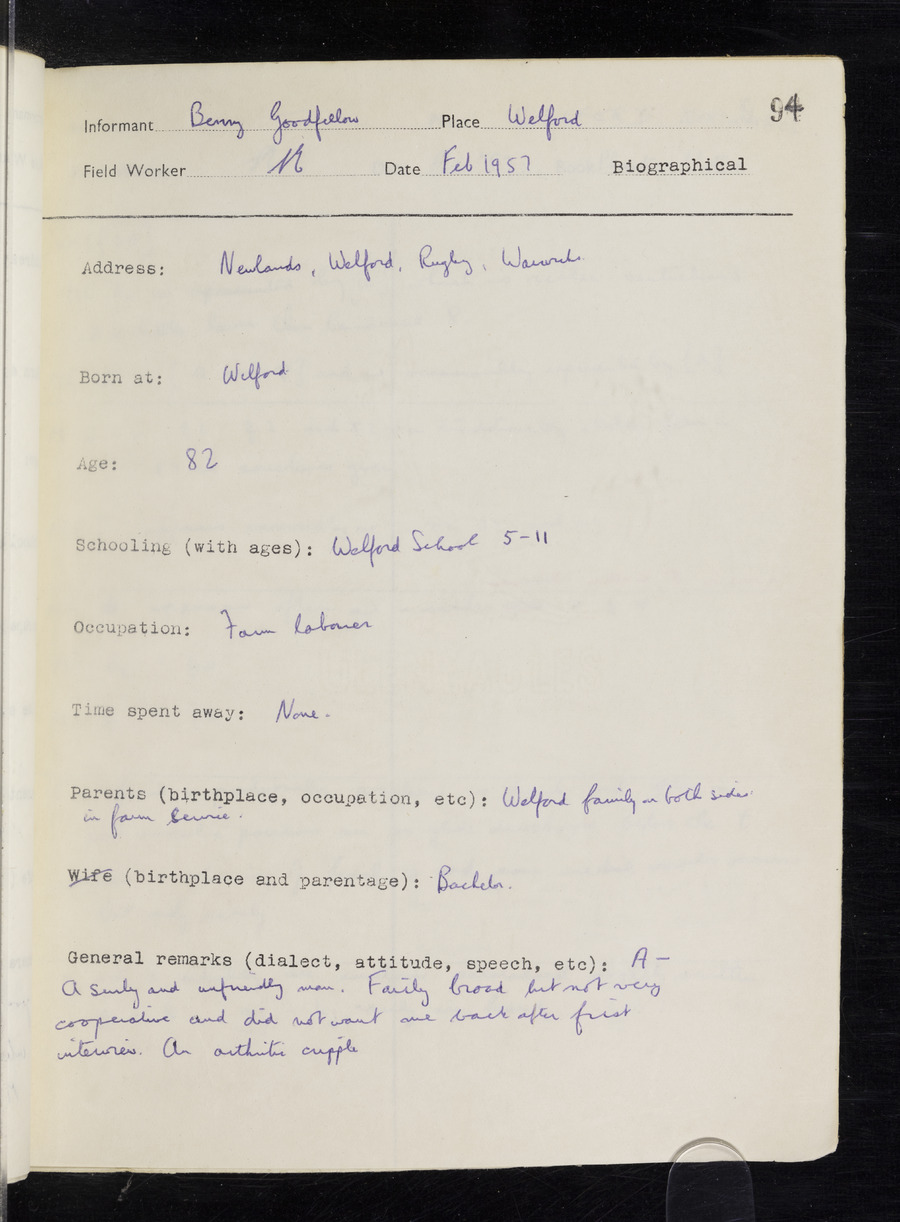 94
Informant Benny Goodfellow Place Welford
Field Worker Date Feb 1957 Biographical
Address: Newlands, Welford, Rugby, Warwicks
Born at: Welford
Age: 82
Schooling (with ages): Welford School 5-11
Occupation: Farm labourer
Time spent away: None.
Parents (birthplace, occupation, etc): Welford family on both sides
in farm service.
Wife (birthplace and parentage): Bachelor.
General remarks (dialect, attitude, speech, etc): A-
A surly and unfriendly man. Fairly broad but not very
cooperative and did not want me back after first
interview. An arthritic cripple